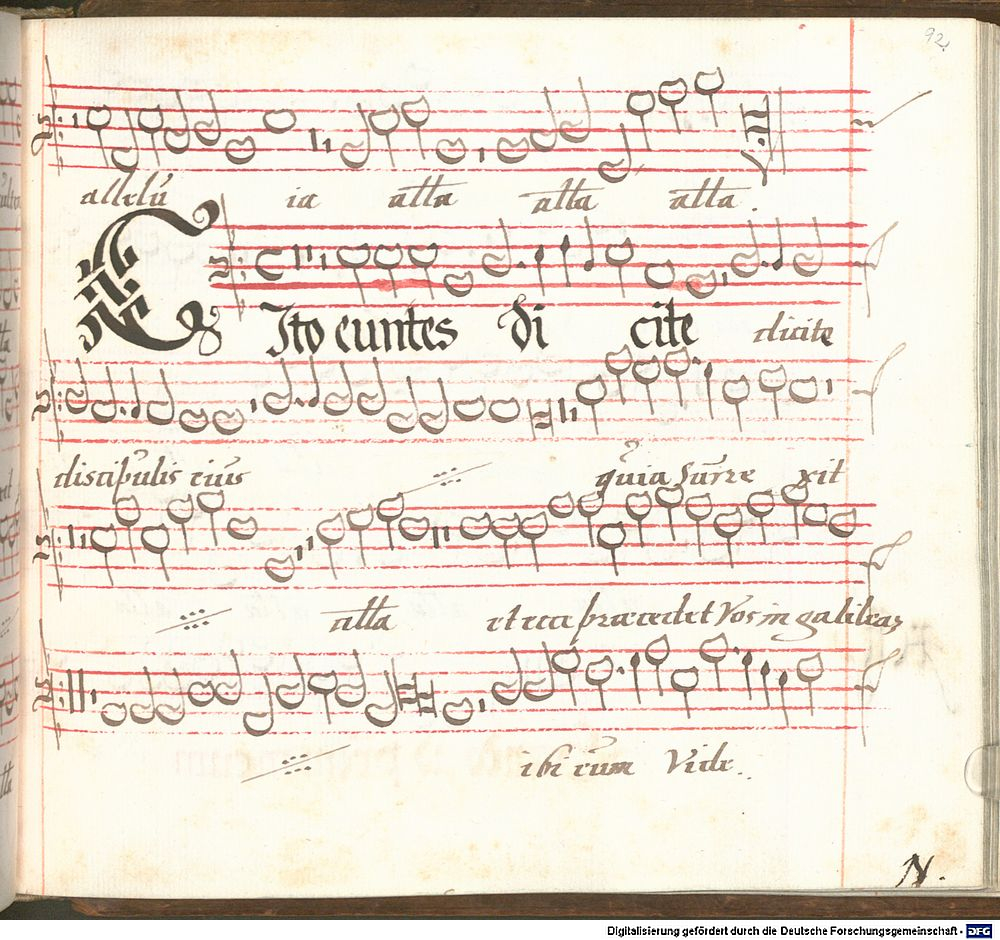 92.
allelu ia alla alla alla.
CIto euntes di cite dicite
discipulis eius quia surre xit
alla et ecce præcedet Vos in galileaz
ibi eum Vide.
N.
Digitalisierung gefördert durch die Deutsche Forschungsgemeinschaft - DFG